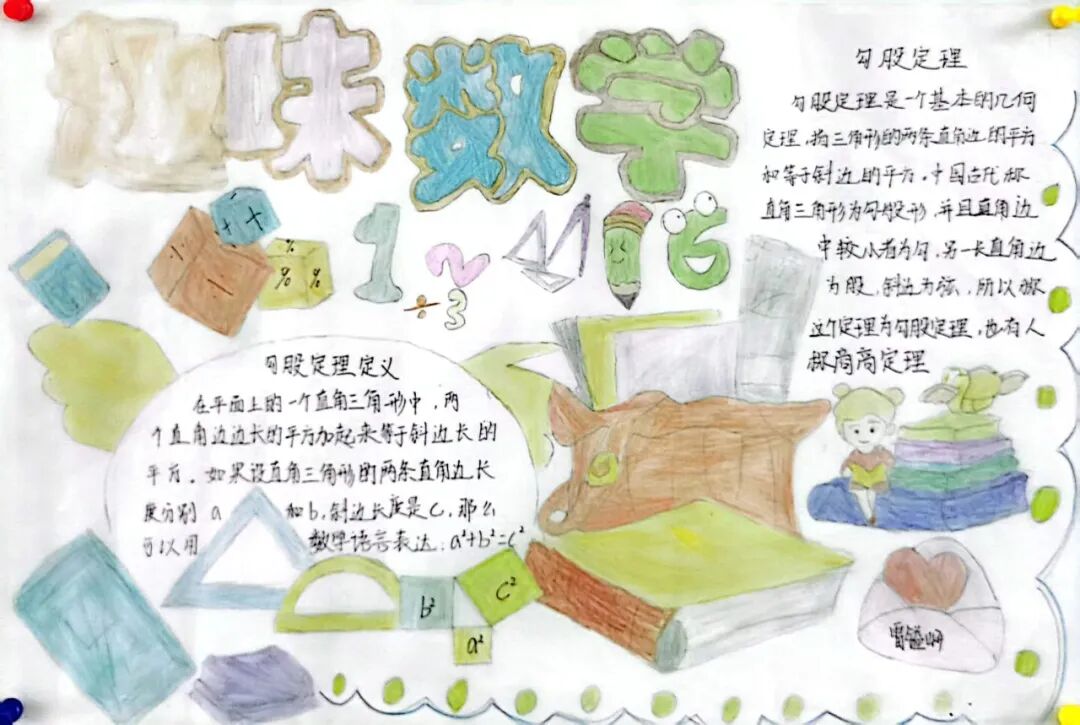 趣味数学
勾股定理
勾股定理是一个基本的几何
定理,指三角形的两条直角边的平方
和等于斜边的平方,中国古代称
直角三角形为勾股形,并且直角边
中较小者为勾,另一长直角边
为股,斜边为弦,所以称
这个定理为勾股定理,也有人
称商高定理
+ +
÷ −
% % %
1 2 ÷ 3 6
勾股定理定义
在平面上的一个直角三角形中,两
个直角边边长的平方加起来等于斜边长的
平方。如果设直角三角形的两条直角边长
度分别 a 和b,斜边长度是C,那么
可以用 数学语言表达:a²+b²=c²
b²
C²
a²